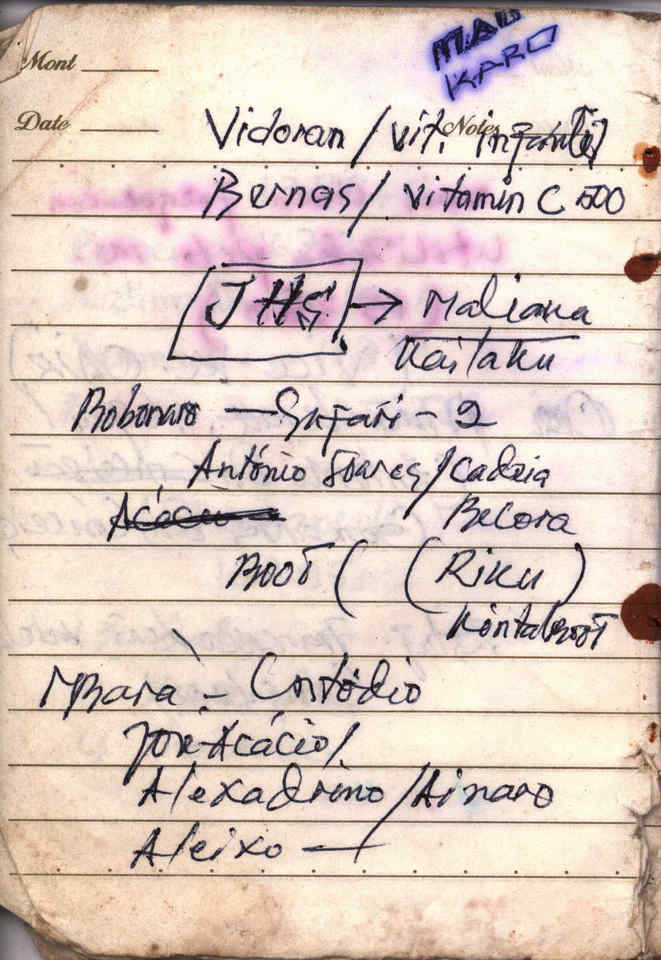 Mont
MAU
KARO
Date
Notes
Vidoran / vit. infantil
Bernas / vitamin C 500
JHS → Maliana
Kailaku
Bobonaro — Safari - 2
António Soares / Cadeia
Acácio Becora
BOOT ( (Riku)
Kontaboot
MBara - Custódio
José Acácio /
Alexadrino / Ainaro
Aleixo —